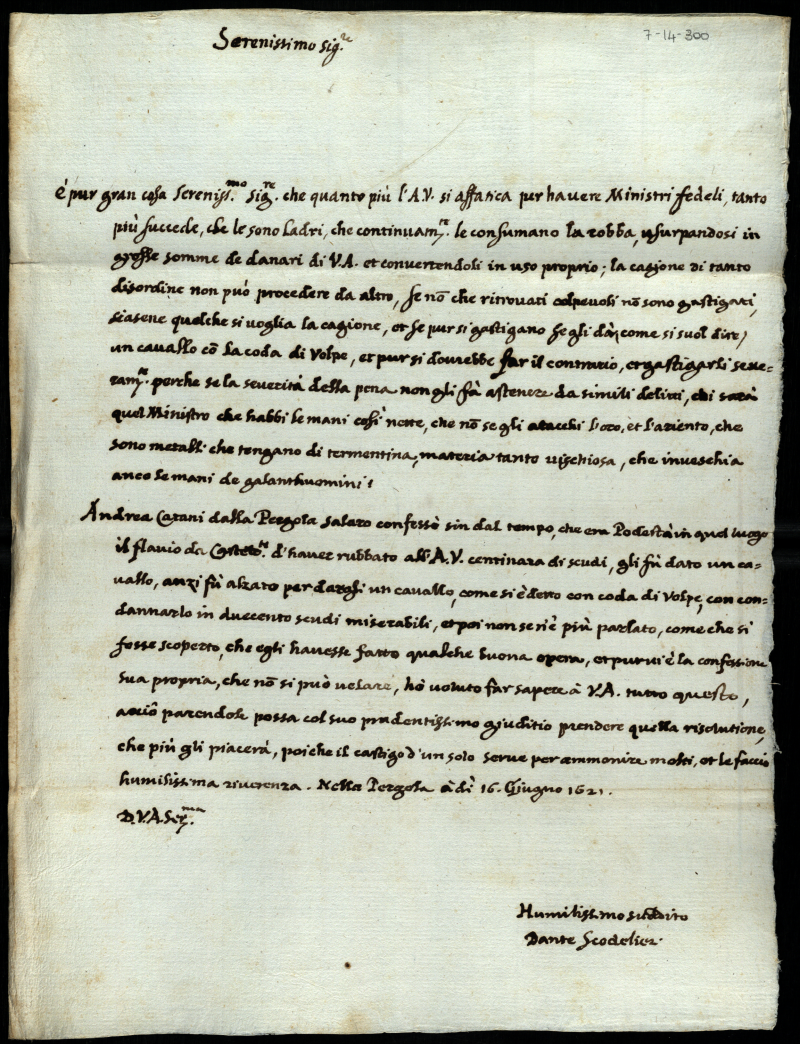 7-14-300
Serenissimo Sig.re
È pur gran cosa Sereniss.mo Sig.re che quanto più l'A.V. si affatica per havere Ministri fedeli, tanto
più succede, che le sono ladri, che continuam.te le consumano la robba, usurpandosi in
grosse somme de danari di V.A. et convertendoli in uso proprio; la cagione di tanto
disordine non può procedere da altro, se nõ che ritrovati colpevoli nõ sono gastigati,
siasene qualche si voglia la cagione, et se pur si gastigano se gli dà, come si suol dire,
un cavallo cõ la coda di Volpe, et pur si dovrebbe far il contrario, et gastigarli seve=
ram.te perche se la severità della pena non gli fà astenere da simili delitti, chi sarà
quel Ministro che habbi le mani così nette, che nõ se gli attacchi l'oro, et l'ariento, che
sono metalli che tengano di termentina, materia tanto vischiosa, che inveschia
anco le mani de galanthuomini?
Andrea Catani dalla Pergola salaro confessò sin dal tempo, che era Podestà in quel luogo
il flavio da d'haver rubbato all'A.V. centinara di scudi, gli fù dato un ca=
vallo, anzi fù alzato per dargli un cavallo, come si è detto con coda di Volpe, con con=
dannarlo in duecento scudi miserabili, et poi non se ne è più parlato, come che si
fosse scoperto, che egli havesse fatto qualche buona opera, et pur vi è la confessione
sua propria, che nõ si può velare, hò voluto far sapere à V.A. tutto questo,
acciò parendole possa col suo prudentissimo giuditio prendere quella risolutione,
che più gli piacerà, poiche il castigo d'un solo serve per ammonire molti, et le faccio
humilissima riverenza. Nella Pergola à dì 16. Giugno 1621.
D.V.A.Ser.ma
Humilissimo suddito
Dante Scodelier.